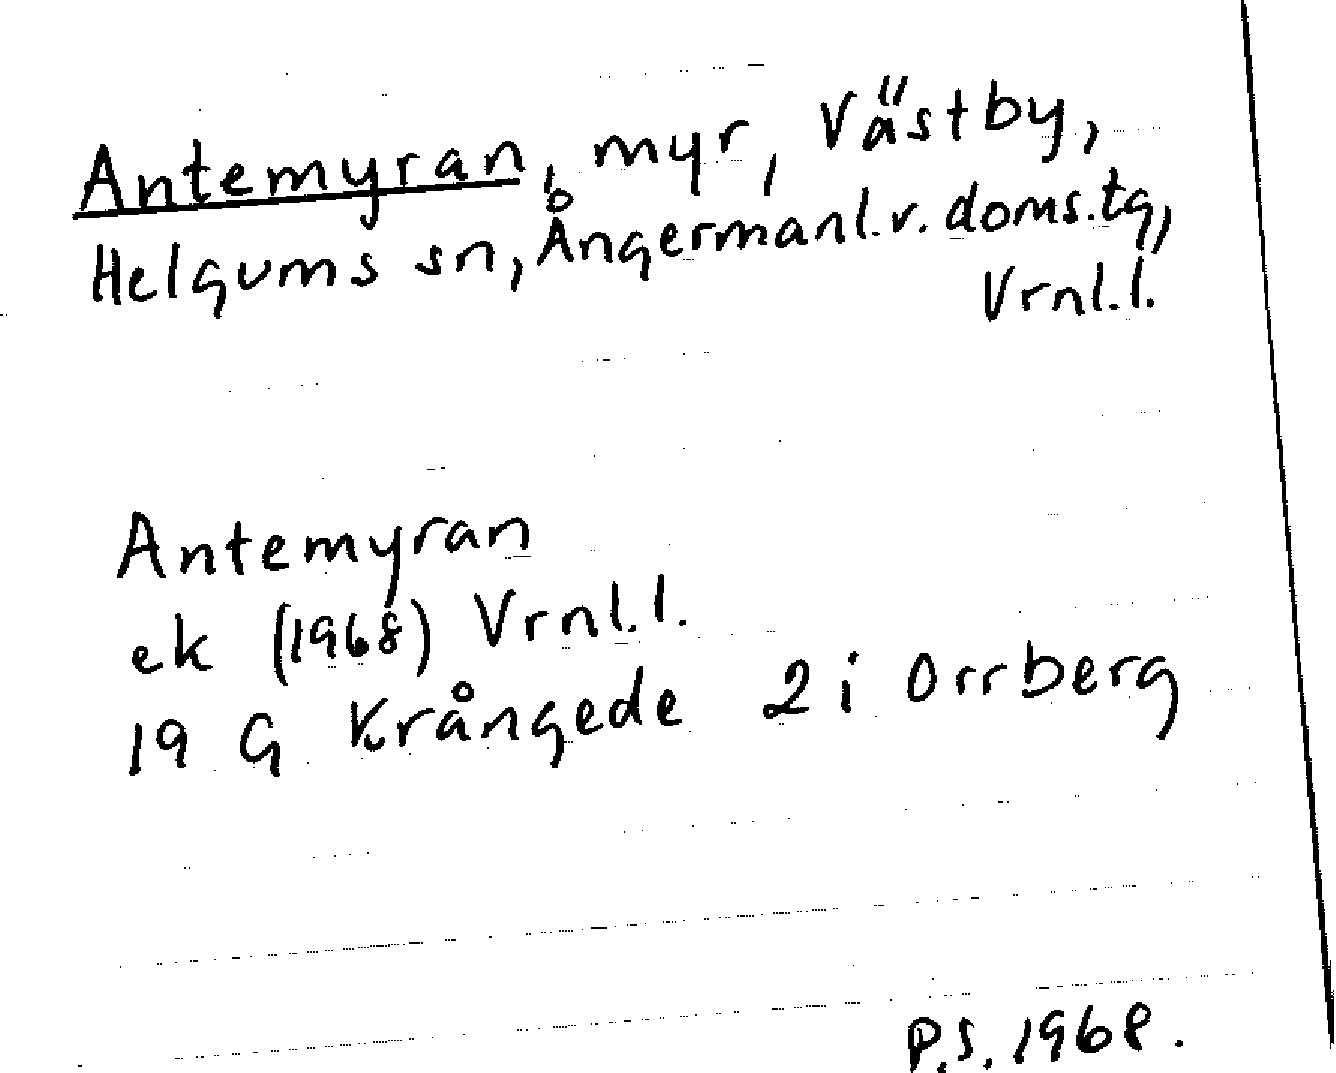 Antemyran, myr, Västby,
Helgums sn, Ångermanl.v. doms.tg,
Vrnl.l.
Antemyran
ek (1968) Vrnl.l.
19 G Krångede 2 i Orrberg
P.S. 1968.